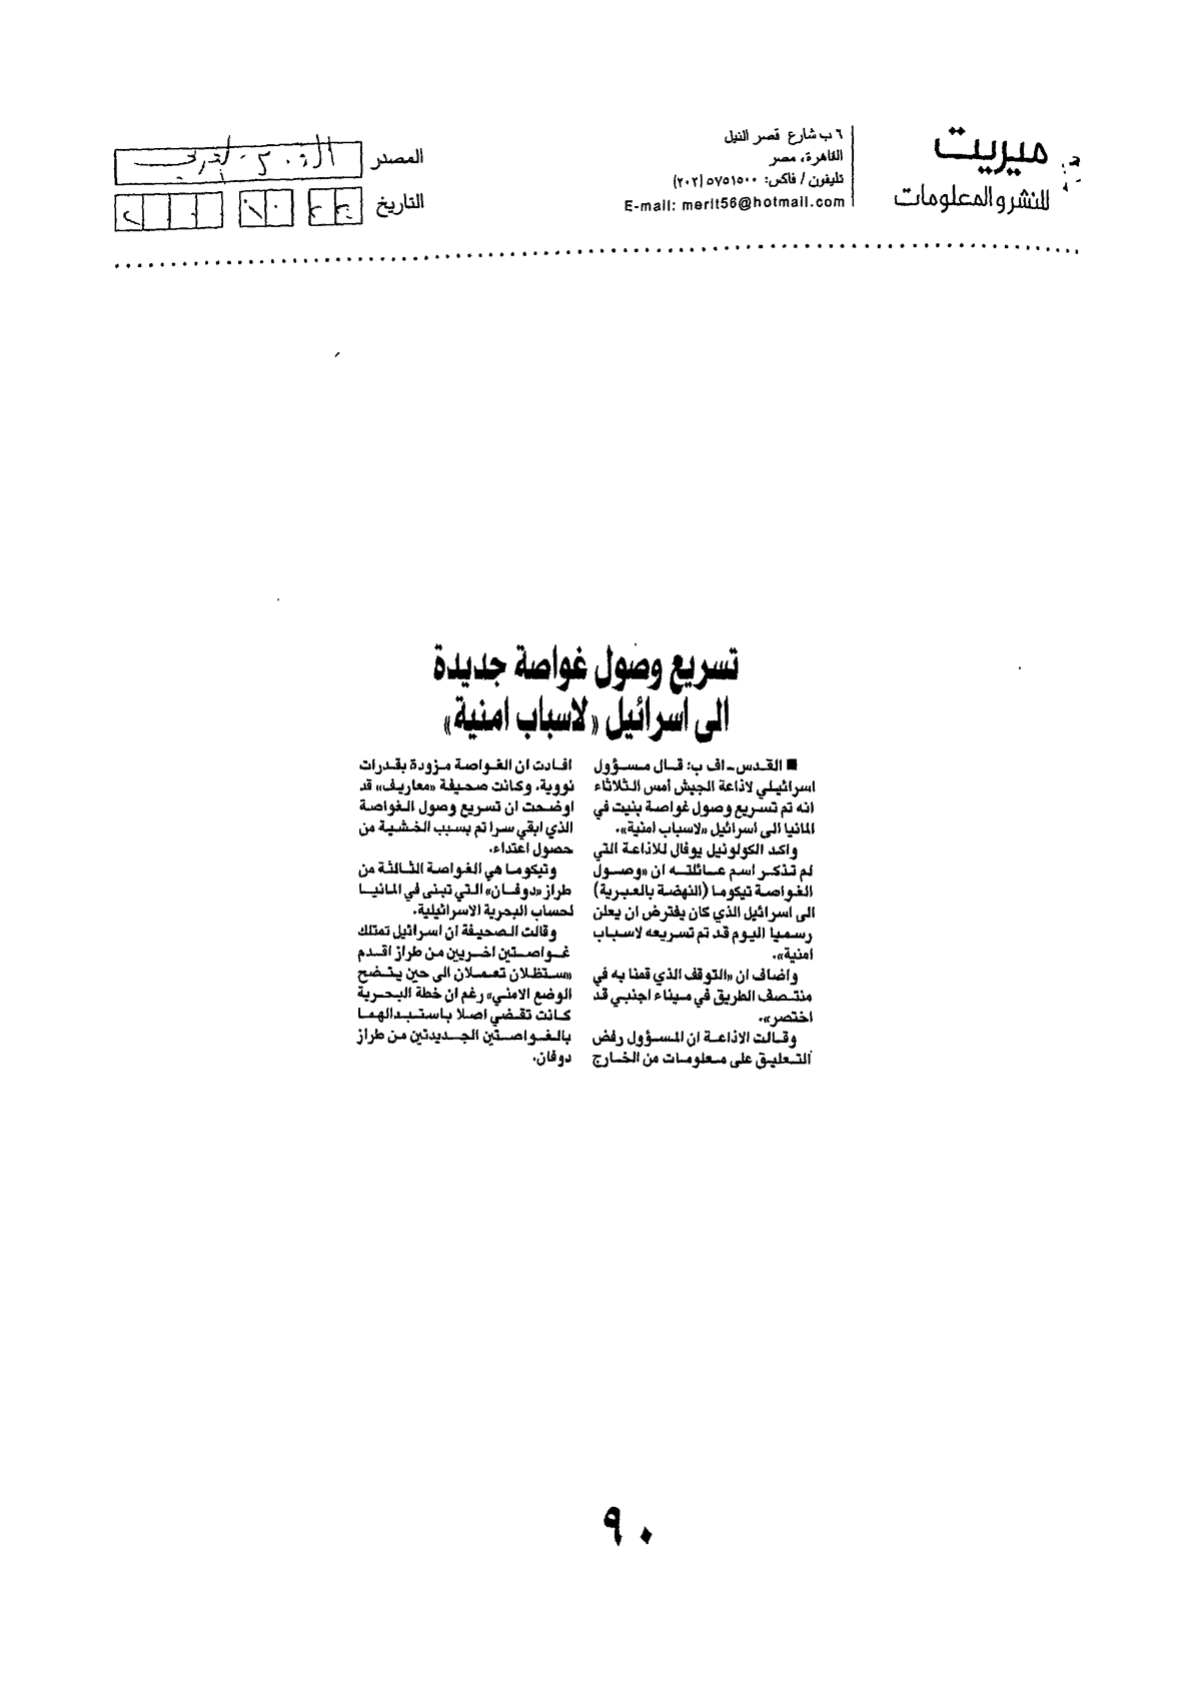 ميريت
للنشر والمعلومات
٦ ب شارع قصر النيل
القاهرة، مصر
تليفون / فاكس: ٥٧٥١٥٠٠ (٢٠٢)
E-mail: merit56@hotmail.com
المصدر
التاريخ
تسريع وصول غواصة جديدة
الى اسرائيل «لاسباب امنية»
■ القدس ـ اف ب: قال مسؤول
اسرائيلي لاذاعة الجيش أمس الثلاثاء
انه تم تسريع وصول غواصة بنيت في
المانيا الى اسرائيل «لاسباب امنية».
واكد الكولونيل يوفال للاذاعة التي
لم تذكر اسم عائلته ان «وصول
الغواصة تيكوما (النهضة بالعبرية)
الى اسرائيل الذي كان يفترض ان يعلن
رسميا اليوم قد تم تسريعه لاسباب
امنية».
واضاف ان «التوقف الذي قمنا به في
منتصف الطريق في ميناء اجنبي قد
اختصر».
وقالت الاذاعة ان المسؤول رفض
التعليق على معلومات من الخارج
افادت ان الغواصة مزودة بقدرات
نووية. وكانت صحيفة «معاريف» قد
اوضحت ان تسريع وصول الغواصة
الذي ابقي سرا تم بسبب الخشية من
حصول اعتداء.
وتيكوما هي الغواصة الثالثة من
طراز «دوفان» التي تبنى في المانيا
لحساب البحرية الاسرائيلية.
وقالت الصحيفة ان اسرائيل تمتلك
غواصتين اخريين من طراز اقدم
«ستظلان تعملان الى حين يتضح
الوضع الامني» رغم ان خطة البحرية
كانت تقضي اصلا باستبدالهما
بالغواصتين الجديدتين من طراز
دوفان.
٩٠